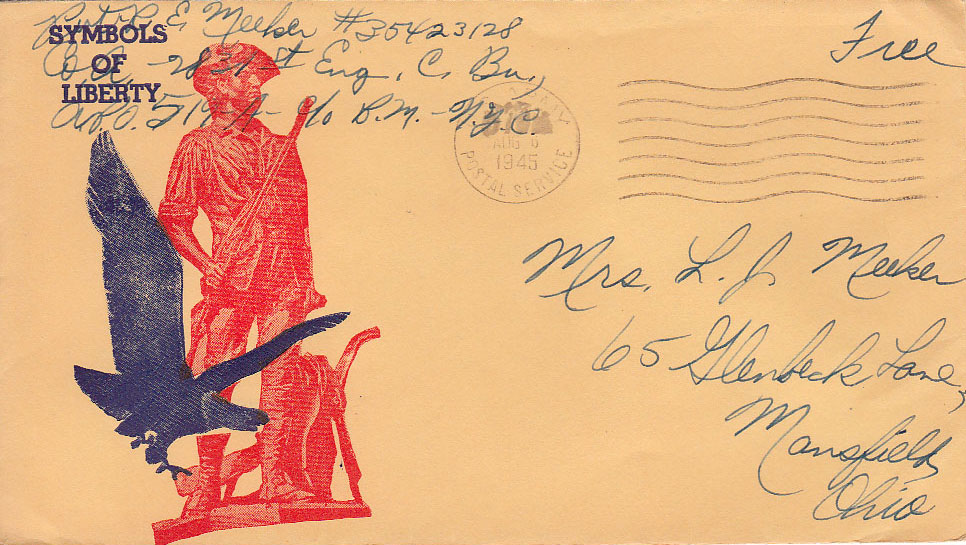 Pvt. R E Meeker #35423128
Co A, -2831st Eng. C. Bn.,
A.P.O. 519 A- c/o P.M.-N.Y.C.
SYMBOLS
OF
LIBERTY
Free
AUG 6
1945
POSTAL SERVICE
Mrs. L. J. Meeker
65 Glenbeck Lane,
Mansfield,
Ohio